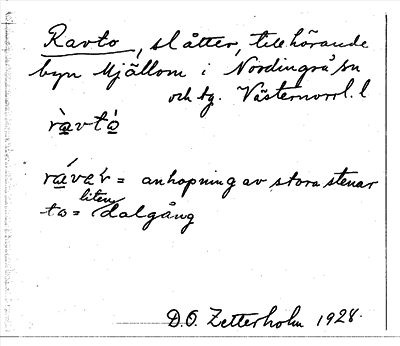 Ravto, slåtter, tillhörande
byn Mjällom i Nordingrå sn
och tg. Västernorrl. l
ràvtò
rávar = anhopning av stora stenar
to = liten dalgång
D.O. Zetterholm 1928.